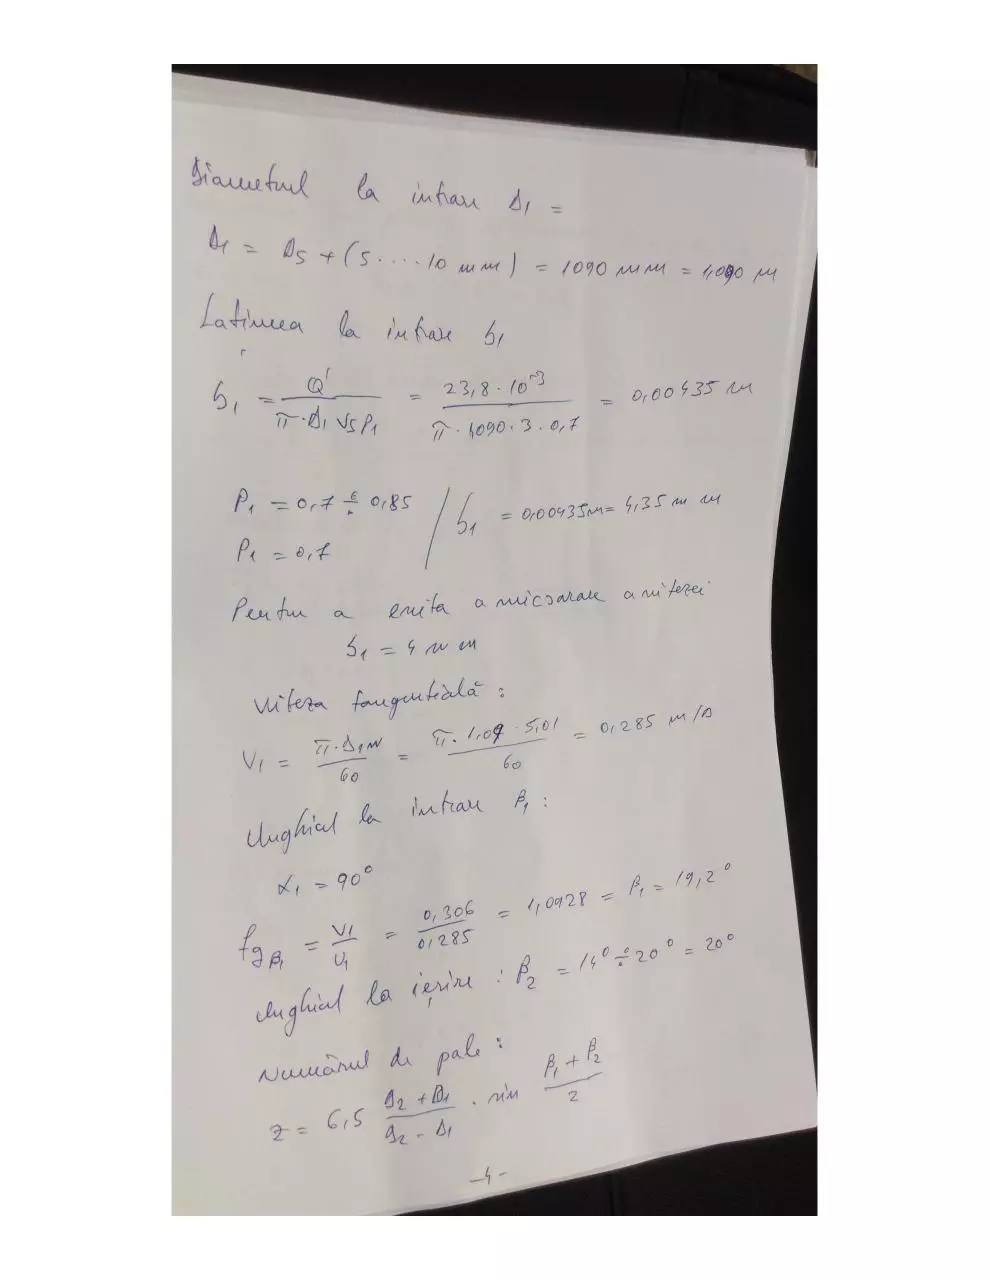 Diametrul la intrare D1 =
D1 = DS + (5....10 mm) = 1090 mm = 1,090 m
Latimea la intrare b1
b1 = Q' / (π·D1 VS P1) = 23,8·10^-3 / (π·1,090·3·0,7) = 0,00435 m
P1 = 0,7 ÷ 0,85 / b1 = 0,00435m = 4,35 mm
P1 = 0,7
Pentru a evita a micsorare a vitezei
b1 = 4 mm
Viteza tangentială :
V1 = π·D1 n / 60 = π·1,09·5,01 / 60 = 0,285 m/s
Unghiul la intrare β1 :
α1 = 90°
tg β1 = V1 / U1 = 0,306 / 0,285 = 1,0928 = β1 = 19,2°
Unghiul la ieșire : β2 = 14° ÷ 20° = 20°
Numărul de pale :
z = 6,5 (D2 + D1) / (D2 - D1) · sin (β1 + β2) / 2
-4-